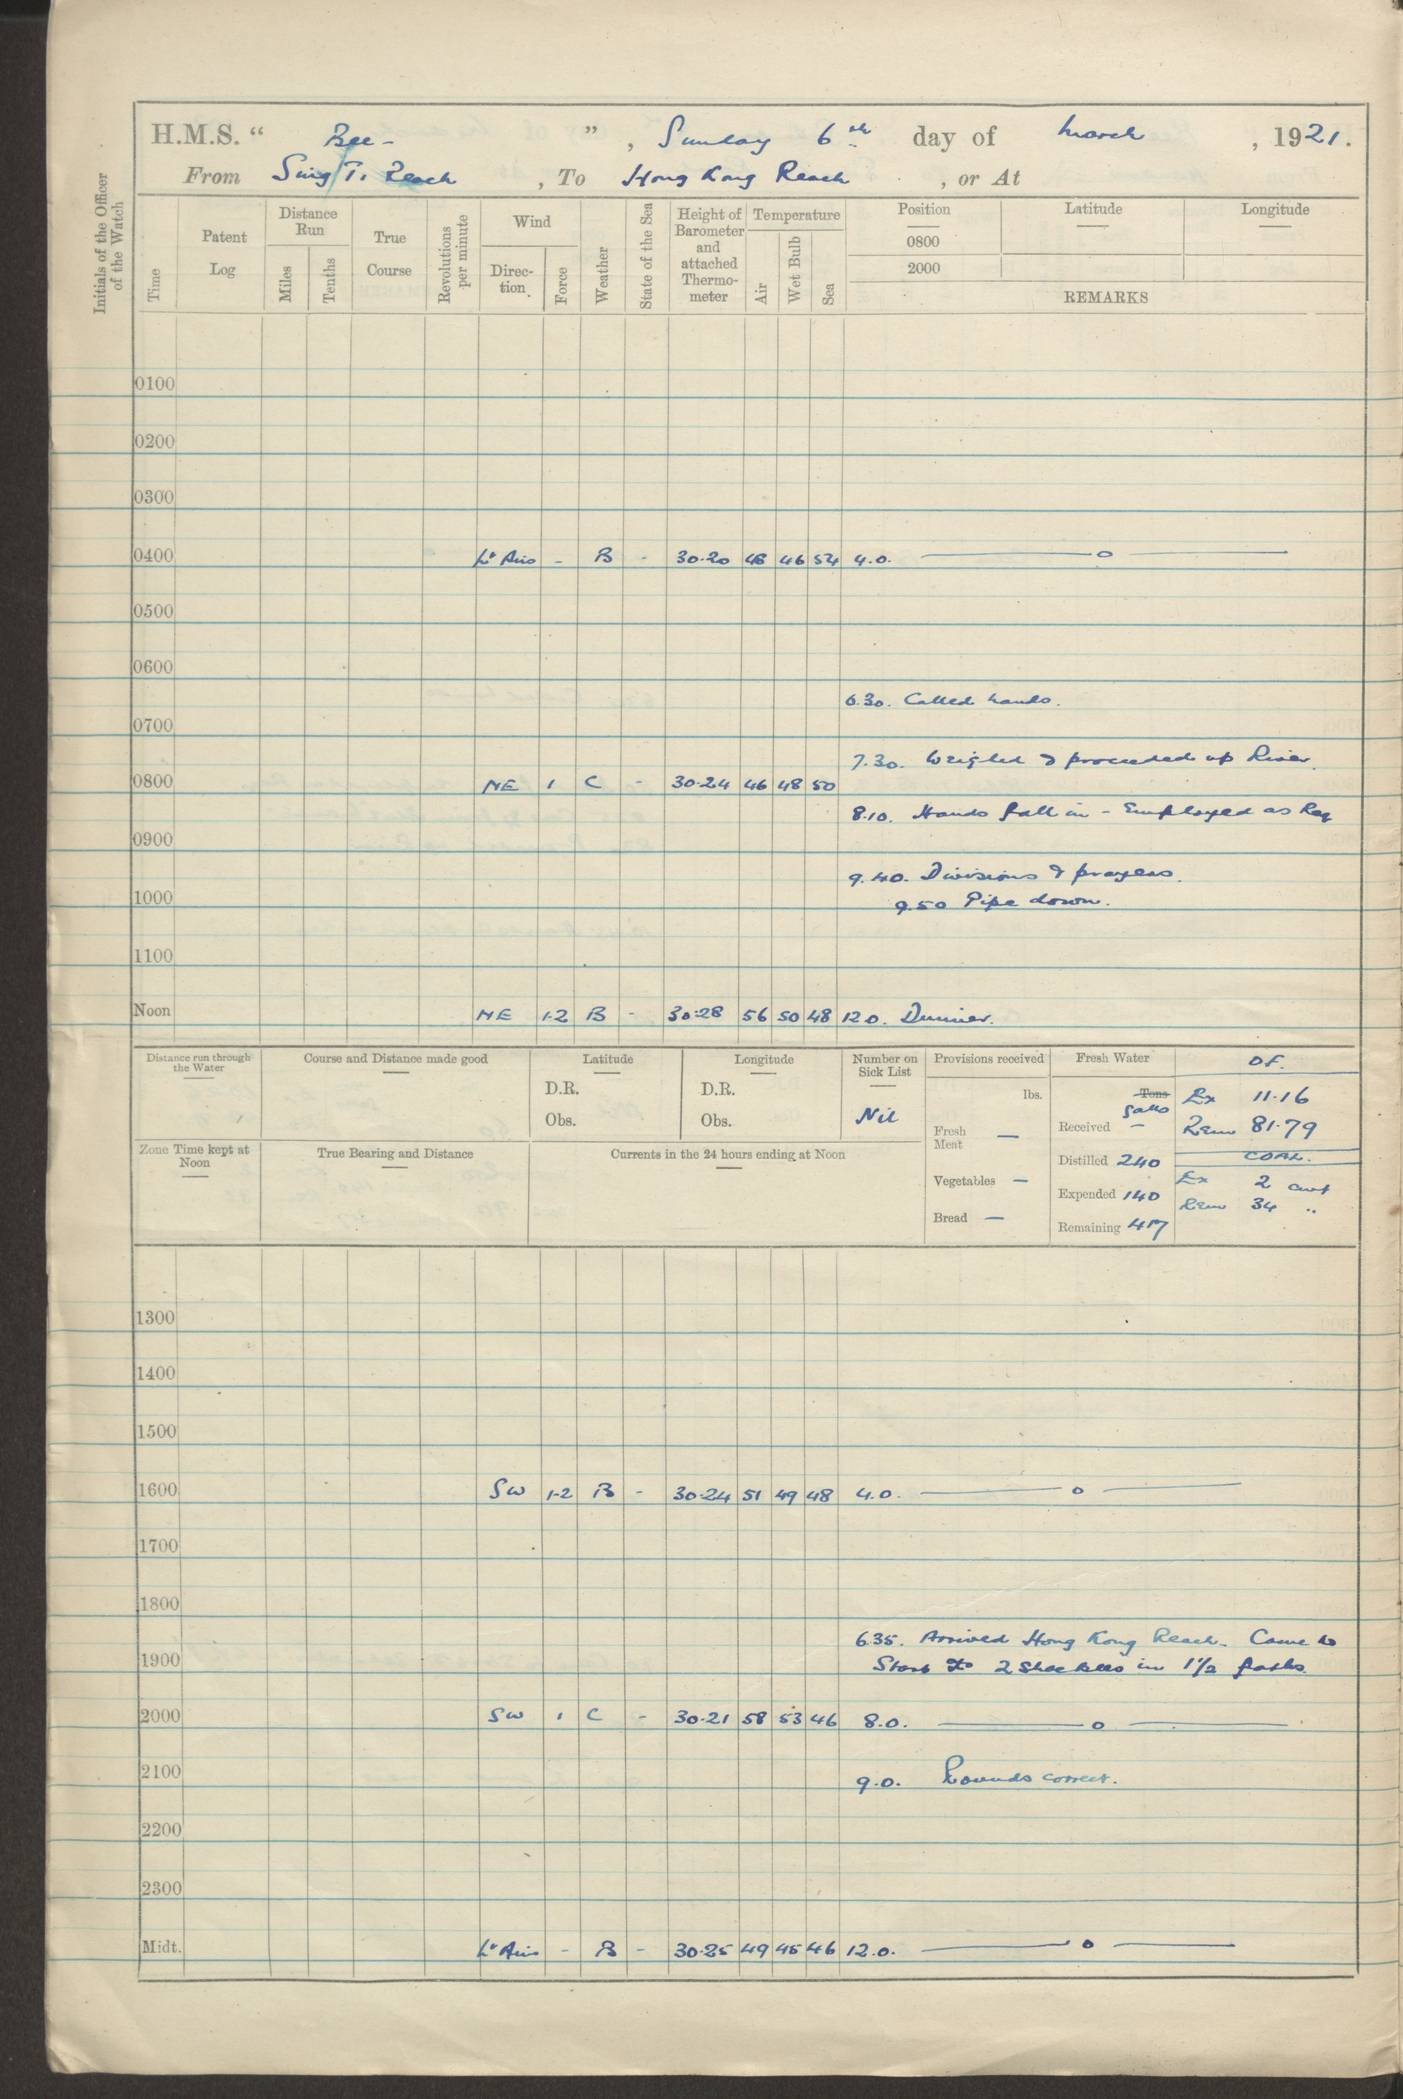 H.M.S. “ Bee - ” , Sunday 6th day of March , 1921.
From Sing Ti Reach , To Hong Kong Reach , or At
Initials of the Officer of the Watch
Time
Patent Log
Distance Run
Miles
Tenths
True Course
Revolutions per minute
Wind
Direction.
Force
Weather
State of the Sea
Height of Barometer and attached Thermometer
Temperature
Air
Wet Bulb
Sea
Position
0800
2000
Latitude
Longitude
REMARKS
0100
0200
0300
0400 Lt Airs - B - 30·20 48 46 54 4.0. —— o ——
0500
0600
6.30. Called hands.
0700
7.30. Weighed & proceeded up River.
0800 NE 1 C - 30·24 46 48 50
8.10. Hands fall in - Employed as Req
0900
9.40. Divisions & prayers.
1000 9.50 Pipe down.
1100
Noon NE 1-2 B - 30·28 56 50 48 12.0. Dinner.
Distance run through the Water
Course and Distance made good
Latitude
D.R.
Obs.
Longitude
D.R.
Obs.
Number on Sick List
Nil
Provisions received
lbs.
Fresh Meat —
Vegetables —
Bread —
Fresh Water
Tons
Galls
Received -
Distilled 240
Expended 140
Remaining 417
O.F.
Ex 11·16
Rem 81·79
COAL.
Ex 2 cwt
Rem 34 "
Zone Time kept at Noon
True Bearing and Distance
Currents in the 24 hours ending at Noon
1300
1400
1500
1600 SW 1-2 B - 30·24 51 49 48 4.0. —— o ——
1700
1800
6.35. Arrived Hong Kong Reach. Came to
1900 Starb to 2 Shackles in 1½ faths.
2000 SW 1 C - 30·21 58 53 46 8.0. —— o ——
2100 9.0. Rounds correct.
2200
2300
Midt. Lt Airs - B - 30·25 49 45 46 12.0. —— o ——